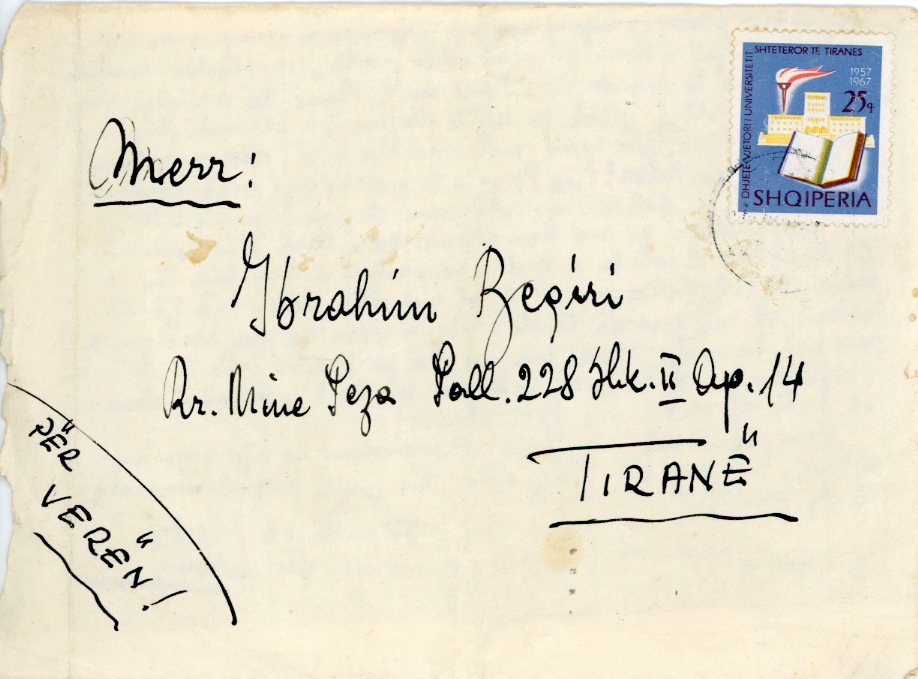 SHTETEROR TE TIRANES
DHJETE VJETORI I UNIVERSITETIT
1957
1967
25q
SHQIPERIA
Merr:
Ibrahim Beqiri
Rr. Mine Peza Pall. 228 Shk. II Ap. 14
TIRANË
PËR
VERËN!